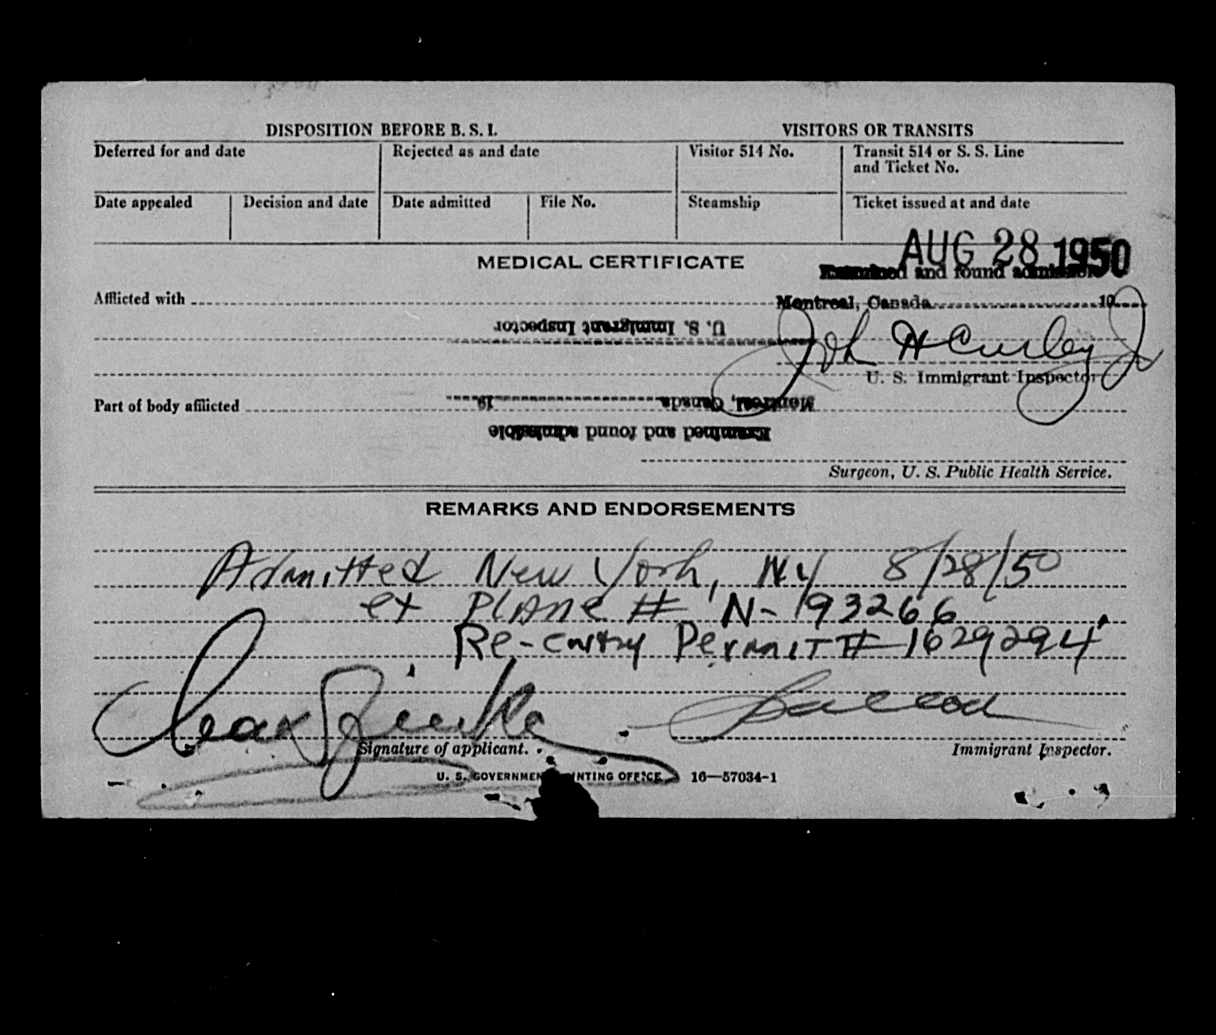 DISPOSITION BEFORE B. S. I. VISITORS OR TRANSITS
Deferred for and date Rejected as and date Visitor 514 No. Transit 514 or S. S. Line
and Ticket No.
Date appealed Decision and date Date admitted File No. Steamship Ticket issued at and date
AUG 28 1950
MEDICAL CERTIFICATE
Examined and found admissible
Afflicted with Montreal, Canada 19
U. S. Immigrant Inspector
John H Curley Jr
U. S. Immigrant Inspector
Part of body afflicted Montreal, Canada, 19
Examined and found admissible
Surgeon, U. S. Public Health Service.
REMARKS AND ENDORSEMENTS
Admitted New York, NY 8/28/50
ex Plane # N-93266
Re-entry Permit # 1629294
Signature of applicant. Immigrant Inspector.
U. S. GOVERNMENT PRINTING OFFICE 16—57034-1